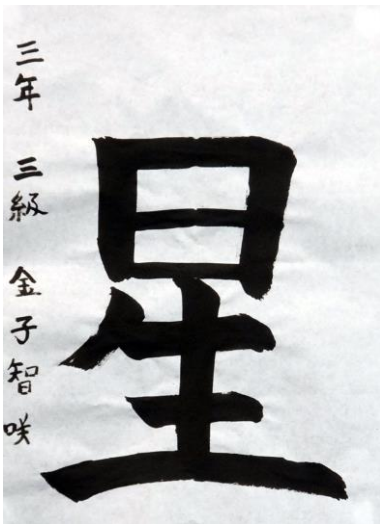 星
三年 三級 金子智咲